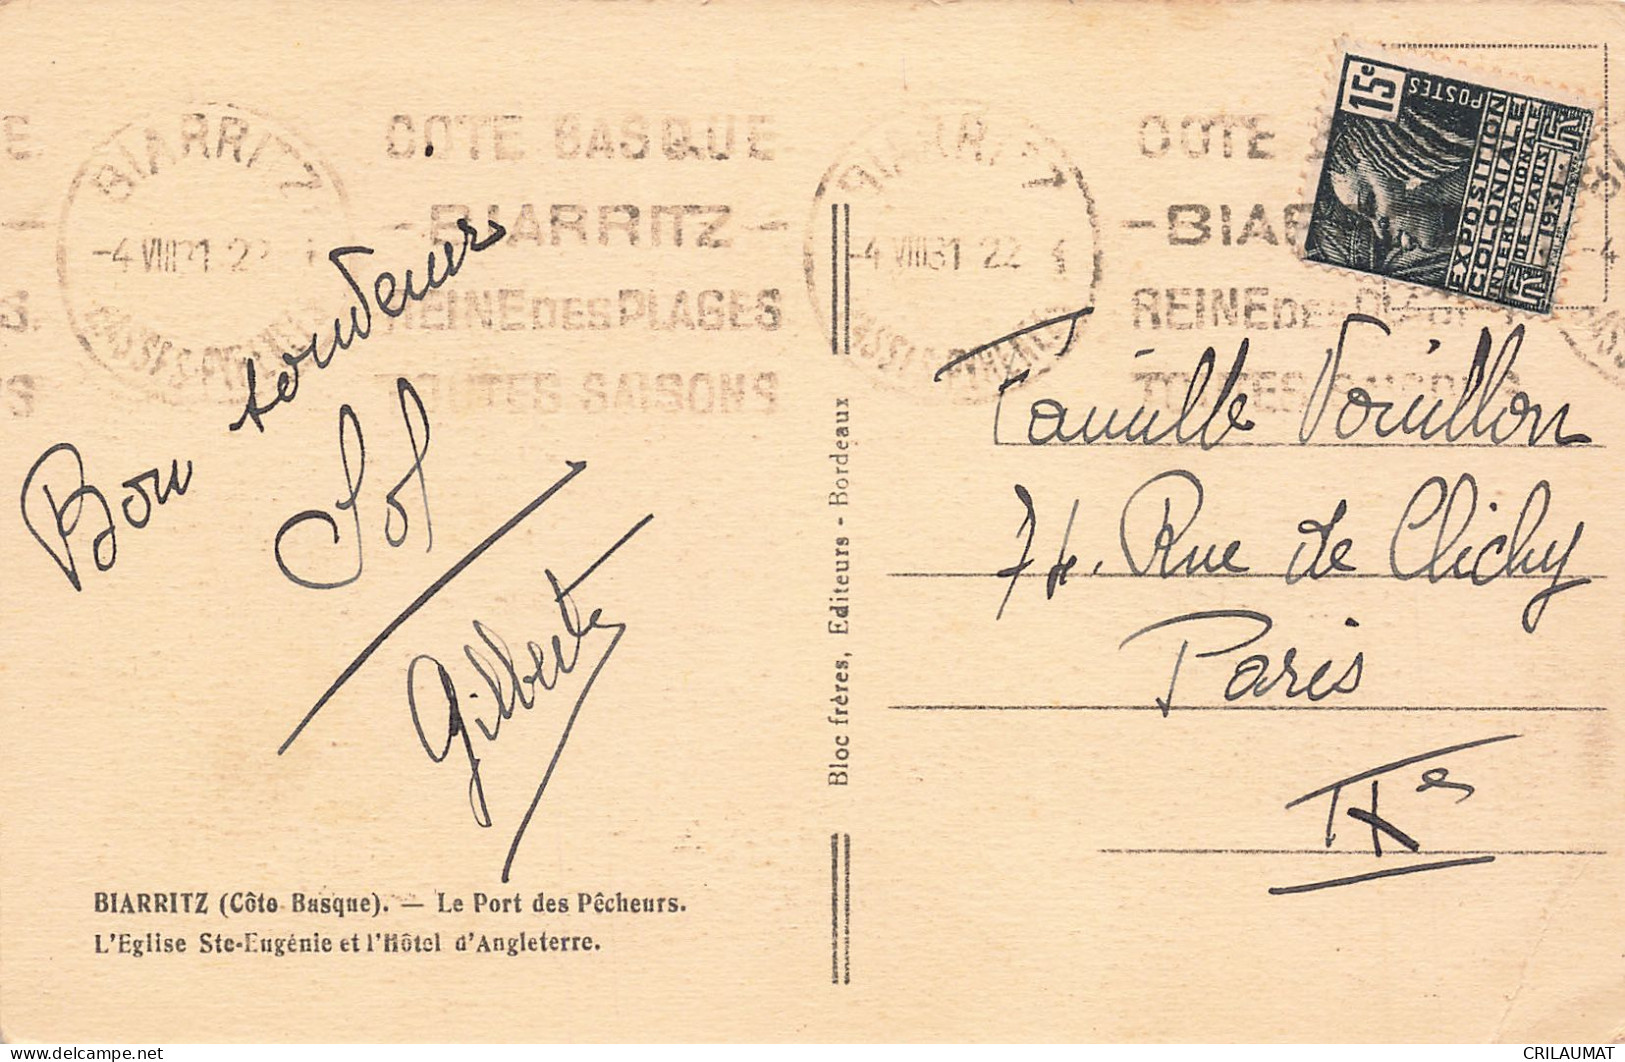 BIARRITZ
-4 VIII 31 22
BASSES-PYRENEES
COTE BASQUE
- BIARRITZ -
REINE DES PLAGES
TOUTES SAISONS
BIARRITZ
-4 VIII 31 22
BASSES-PYRENEES
COTE
- BIARRITZ
REINE DES PLAGES
TOUTES SAISONS
15c
POSTES
EXPOSITION
COLONIALE
INTERNATIONALE
DE PARIS
1931
Bon souvenir
Sol
Gilberte
Famille Vouillon
74. Rue de Clichy
Paris
IXe
Bloc frères, Editeurs - Bordeaux
BIARRITZ (Côte Basque). — Le Port des Pêcheurs.
L'Eglise Ste-Eugénie et l'Hôtel d'Angleterre.
delcampe.net
CRILAUMAT